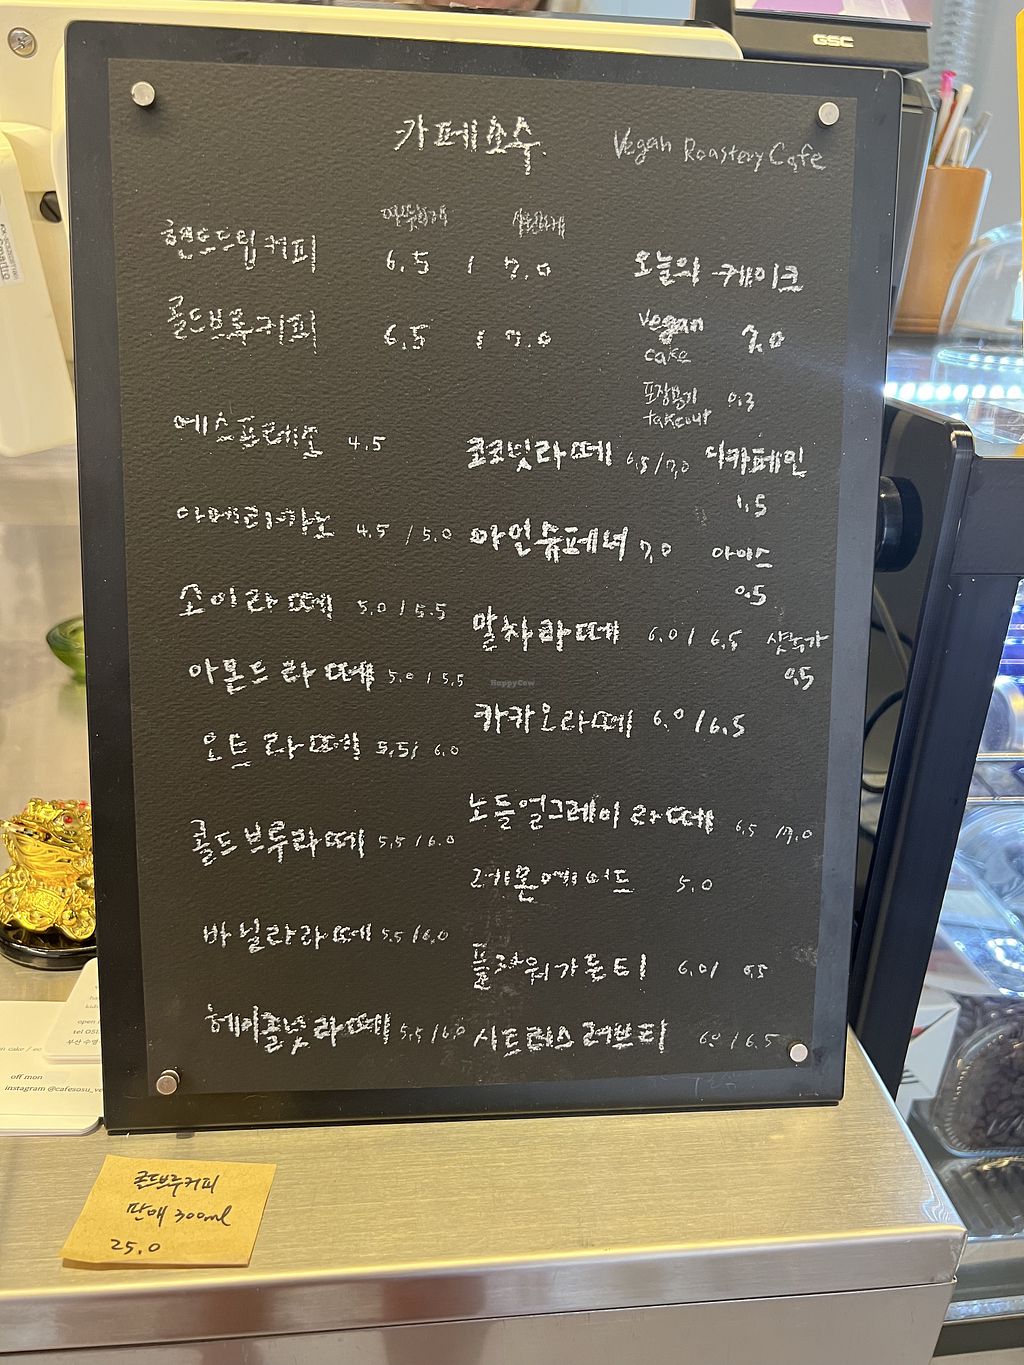 GSC
카페소수 Vegan Roastery Cafe
따뜻하게 시원하게
핸드드립커피 6.5 / 7.0
콜드브루커피 6.5 / 7.0
에스프레소 4.5
아메리카노 4.5 / 5.0
소이라떼 5.0 / 5.5
아몬드라떼 5.0 / 5.5
오트라떼 5.5 / 6.0
콜드브루라떼 5.5 / 6.0
바닐라라떼 5.5 / 6.0
헤이즐넛라떼 5.5 / 6.0
오늘의 케이크
vegan
cake 7.0
포장용기 0.3
takeout
코코넛라떼 6.5 / 7.0
아인슈페너 7.0
말차라떼 6.0 / 6.5
카카오라떼 6.0 / 6.5
노들얼그레이라떼 6.5 / 7.0
레몬에이드 5.0
플라워가든티 6.0 / 6.5
시트러스러브티 6.0 / 6.5
디카페인
1.5
아이스
0.5
샷추가
0.5
HappyCow
open
tel 051
부산 수영
off mon
instagram @cafesosu_ve
콜드브루커피
판매 300ml
25.0